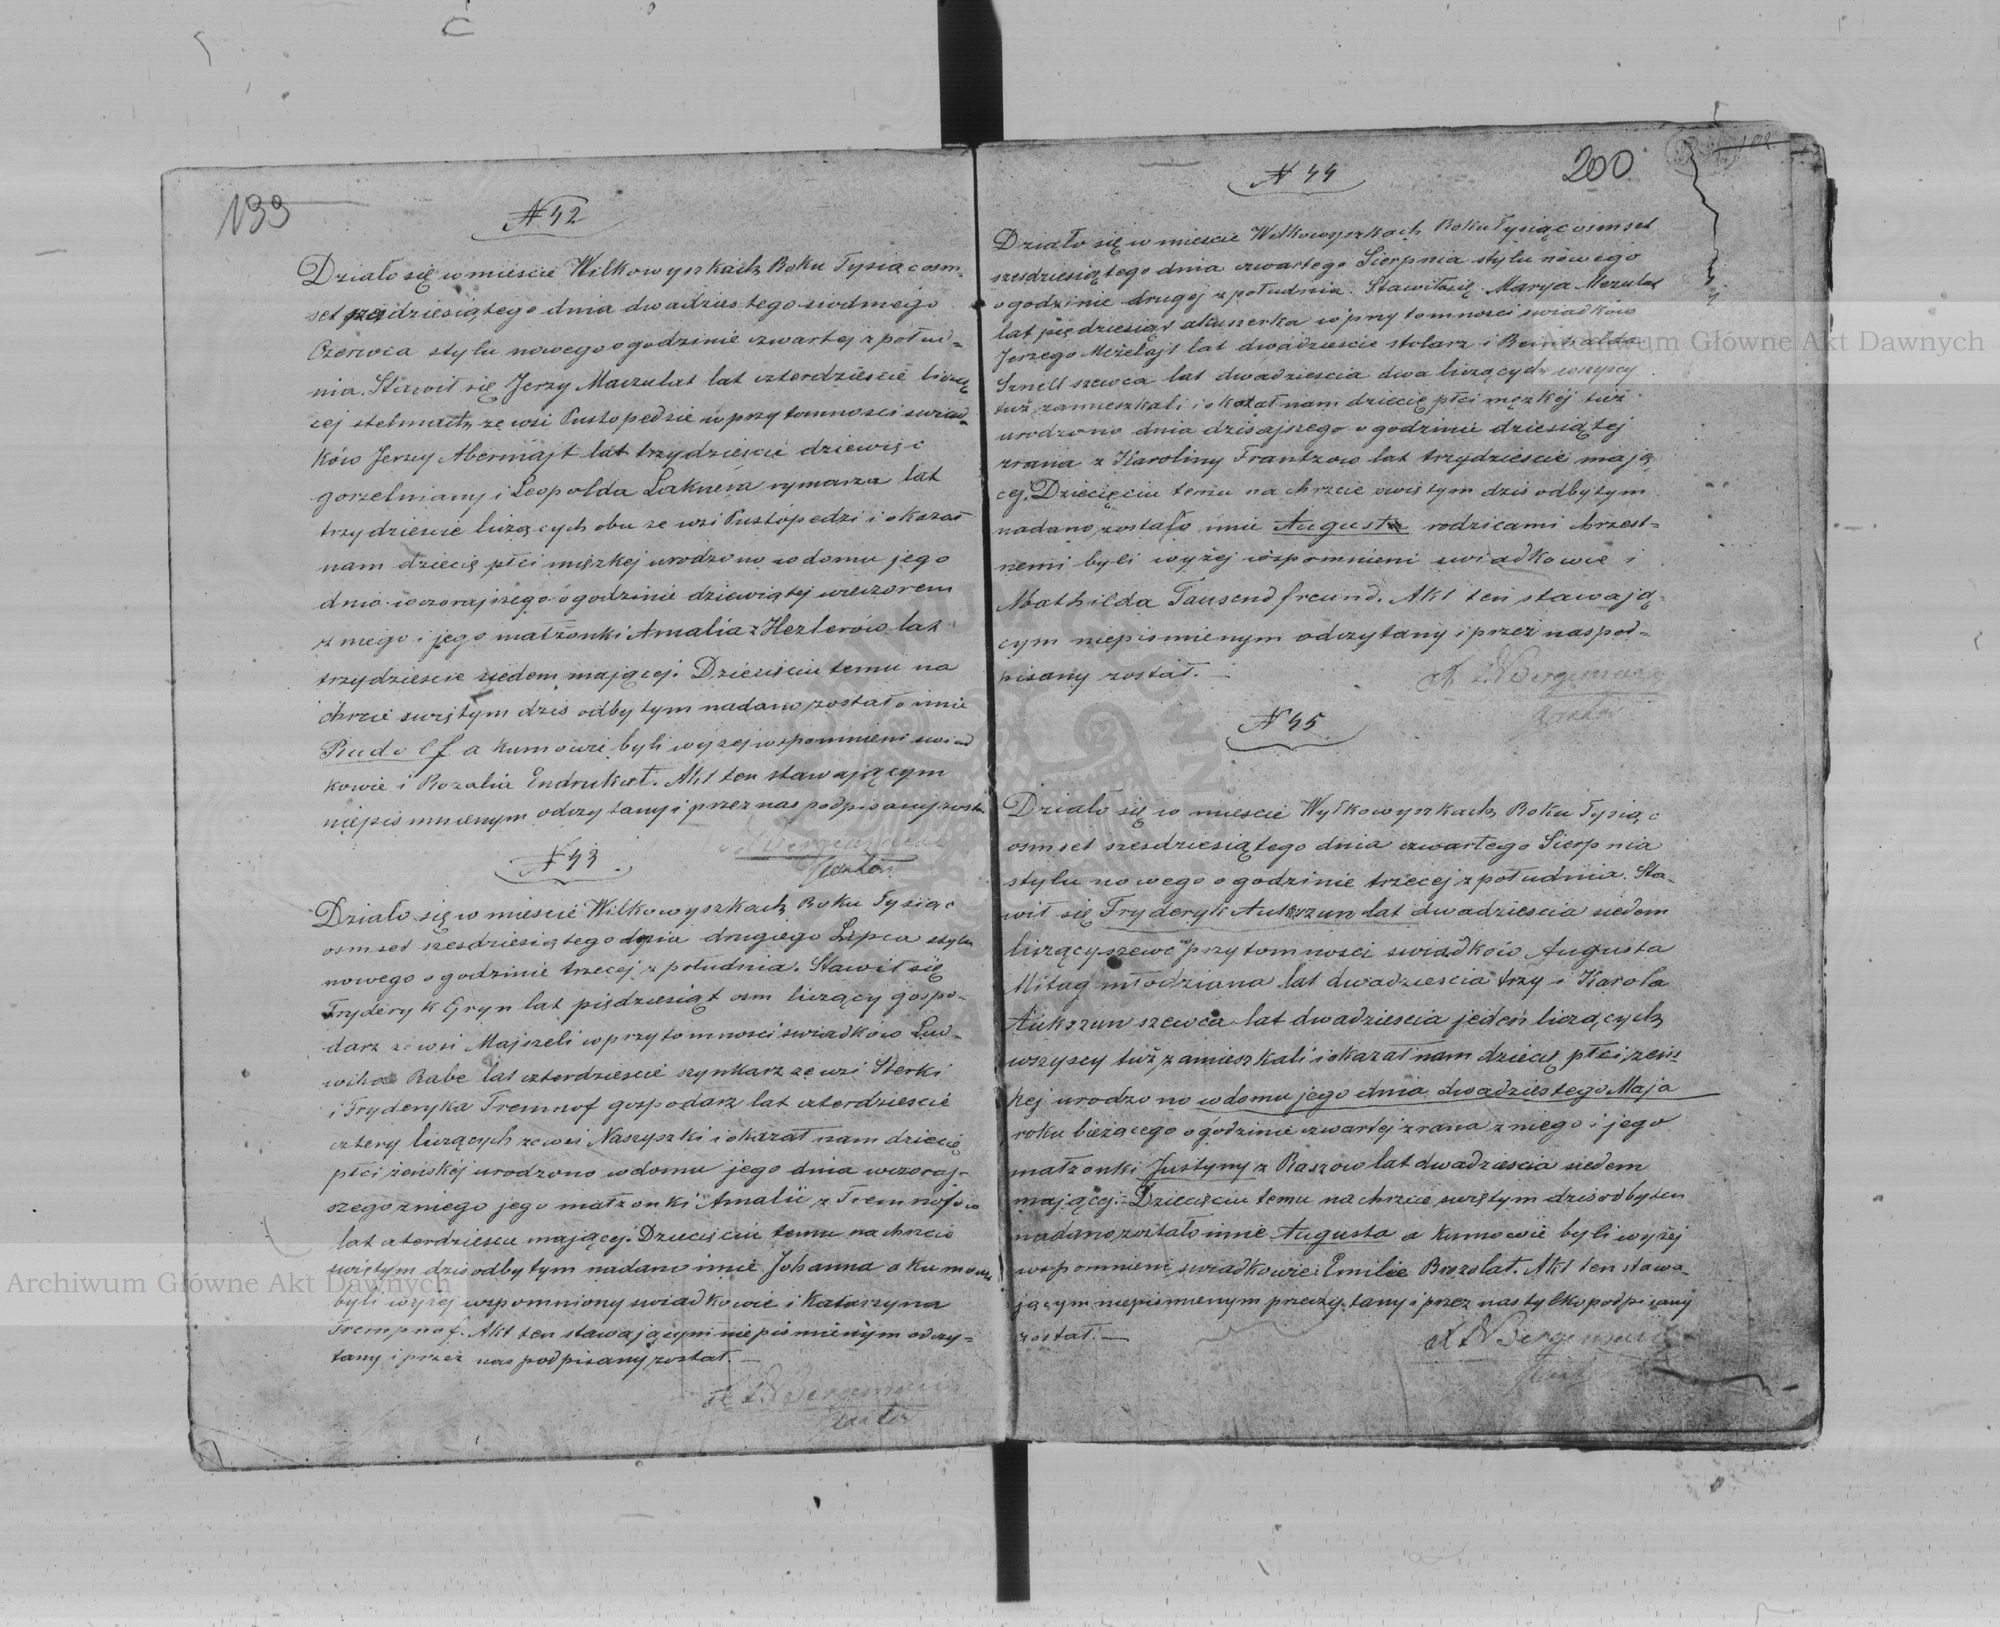 199
N 42
Działo się w mieście Wilkowyszkach Roku Tysiąc osm-
set sześdziesiątego dnia dwadziestego siodmego
Czerwca stylu nowego o godzinie czwartej z połud=
nia. Stawił się Jerzy Maczulat lat czterdzieście liczą
cej stelmach ze wsi Pustopedzie w przytomności świad=
ków Jerzy Abermajt lat trzydzieście dziewięć
gorzelniany i Leopolda Laknera rymarza lat
trzydzieście liczących obu ze wsi Pustopedzi i okazał
nam dziecię płci męzkiej urodzono w domu jego
dnia wczorajszego o godzinie dziewiątej wieczorem
z niego i jego małżonki Amalia z Hezlerów lat
trzydzieście siedem mającej. Dziecięciu temu na
chrzcie świętym dzis odbytym nadano zostało imie
Rudolf a kumowie byli wyżej wspomnieni świad
kowie i Rozalia Endrukat. Akt ten stawającym
niepismienym odczytany i przez nas podpisany został
Pastor
N 43
Działo się w mieście Wilkowyszkach Roku Tysiąc
osmset szesdziesiątego dnia drugiego Lipca stylu
nowego o godzinie trzecej z południa. Stawił się
Fryderyk Gryn lat piędziesiąt osm liczący gospo-
darz ze wsi Majszeli w przytomności świadków Lud-
wika Rabe lat czterdzieście szynkarz ze wsi Sterki
i Fryderyka Tremnof gospodarz lat czterdzieście
cztery liczących ze wsi Naszyszki i okazał nam dziecię
płci żeńskéj urodzono w domu jego dnia wczoraj-
szego z niego jego małżonki Amalii z Tremnofów
lat czterdzieście mającej. Dziecięciu temu na chrzcie
świętym dzis odbytym nadano imie Johanna a kumowie
byli wyżej wzpomniony świadkowie i Katarzyna
Trempnof. Akt ten stawającym niepiśmienym odczy=
tany i przez nas podpisany został. —
Pastor
200
N 44
Działo się w mieście Wilkowyszkach Roku Tysiąc osmset
szesdziesiątego dnia czwartego Sierpnia stylu nowego
o godzinie drugej z południa. Stawiła się Marya Mezulat
lat pięдziesiąt akuszerka w przytomności świadków
Jerzego Mizelajt lat dwadzieście stolarz i
Sznell szewca lat dwadzieścia dwa liczących wszyscy
tuż zamieszkali i okazał nam dziecię płci męzkéj tuż
urodzono dnia dzisajszego o godzinie dziesiątej
zrana z Karoliny Frantzow lat trzydzieście mają
cej. Dziecięciu temu na chrzcie świętym dzis odbytym
nadano zostało imie August rodzicami chrzest=
nemi byli wyżej wspomnieni świadkowie i
Mathilda Tausendfreund. Akt ten stawają=
cym niepismienym odczytany i przez nas pod=
pisany został. —
Pastor
N 45
Działo się w mieście Wyłkowyszkach Roku Tysiąc
osmset szesdziesiątego dnia czwartego Sierpnia
stylu nowego o godzinie trzecej z południa. Sta-
wił się Fryderyk Aukszun lat dwadzieścia siedem
liczący szewc w przytomności świadków Augusta
Mitag młodziana lat dwadzieścia trzy i Karola
Aukszun szewca lat dwadzieścia jeden liczących
wszyscy tuż zamieszkali i okazał nam dziecię płci żeńs
kej urodzono w domu jego dnia dwadziestego Maja
roku bieżącego o godzinie czwartej z rana z niego i jego
małżonki Justyny z Raszow lat dwadzieścia siedem
mającej. Dziecięciu temu na chrzcie świętym dzis odbytem
nadano zostało imie Augusta a kumowie byli wyżej
wspomnieni świadkowie i Emilie Brozolat. Akt ten stawa-
jącym niepismienym przeczytany i przez nas tylko podpisany
został. —
Archiwum Główne Akt Dawnych
Archiwum Główne Akt Dawnych